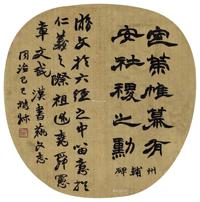 定策帷幕有
安社稷之勳
州
輔碑
游文於六經之中留意於
仁義之際祖述堯舜憲
章文武 漢書藝文志
同治己巳